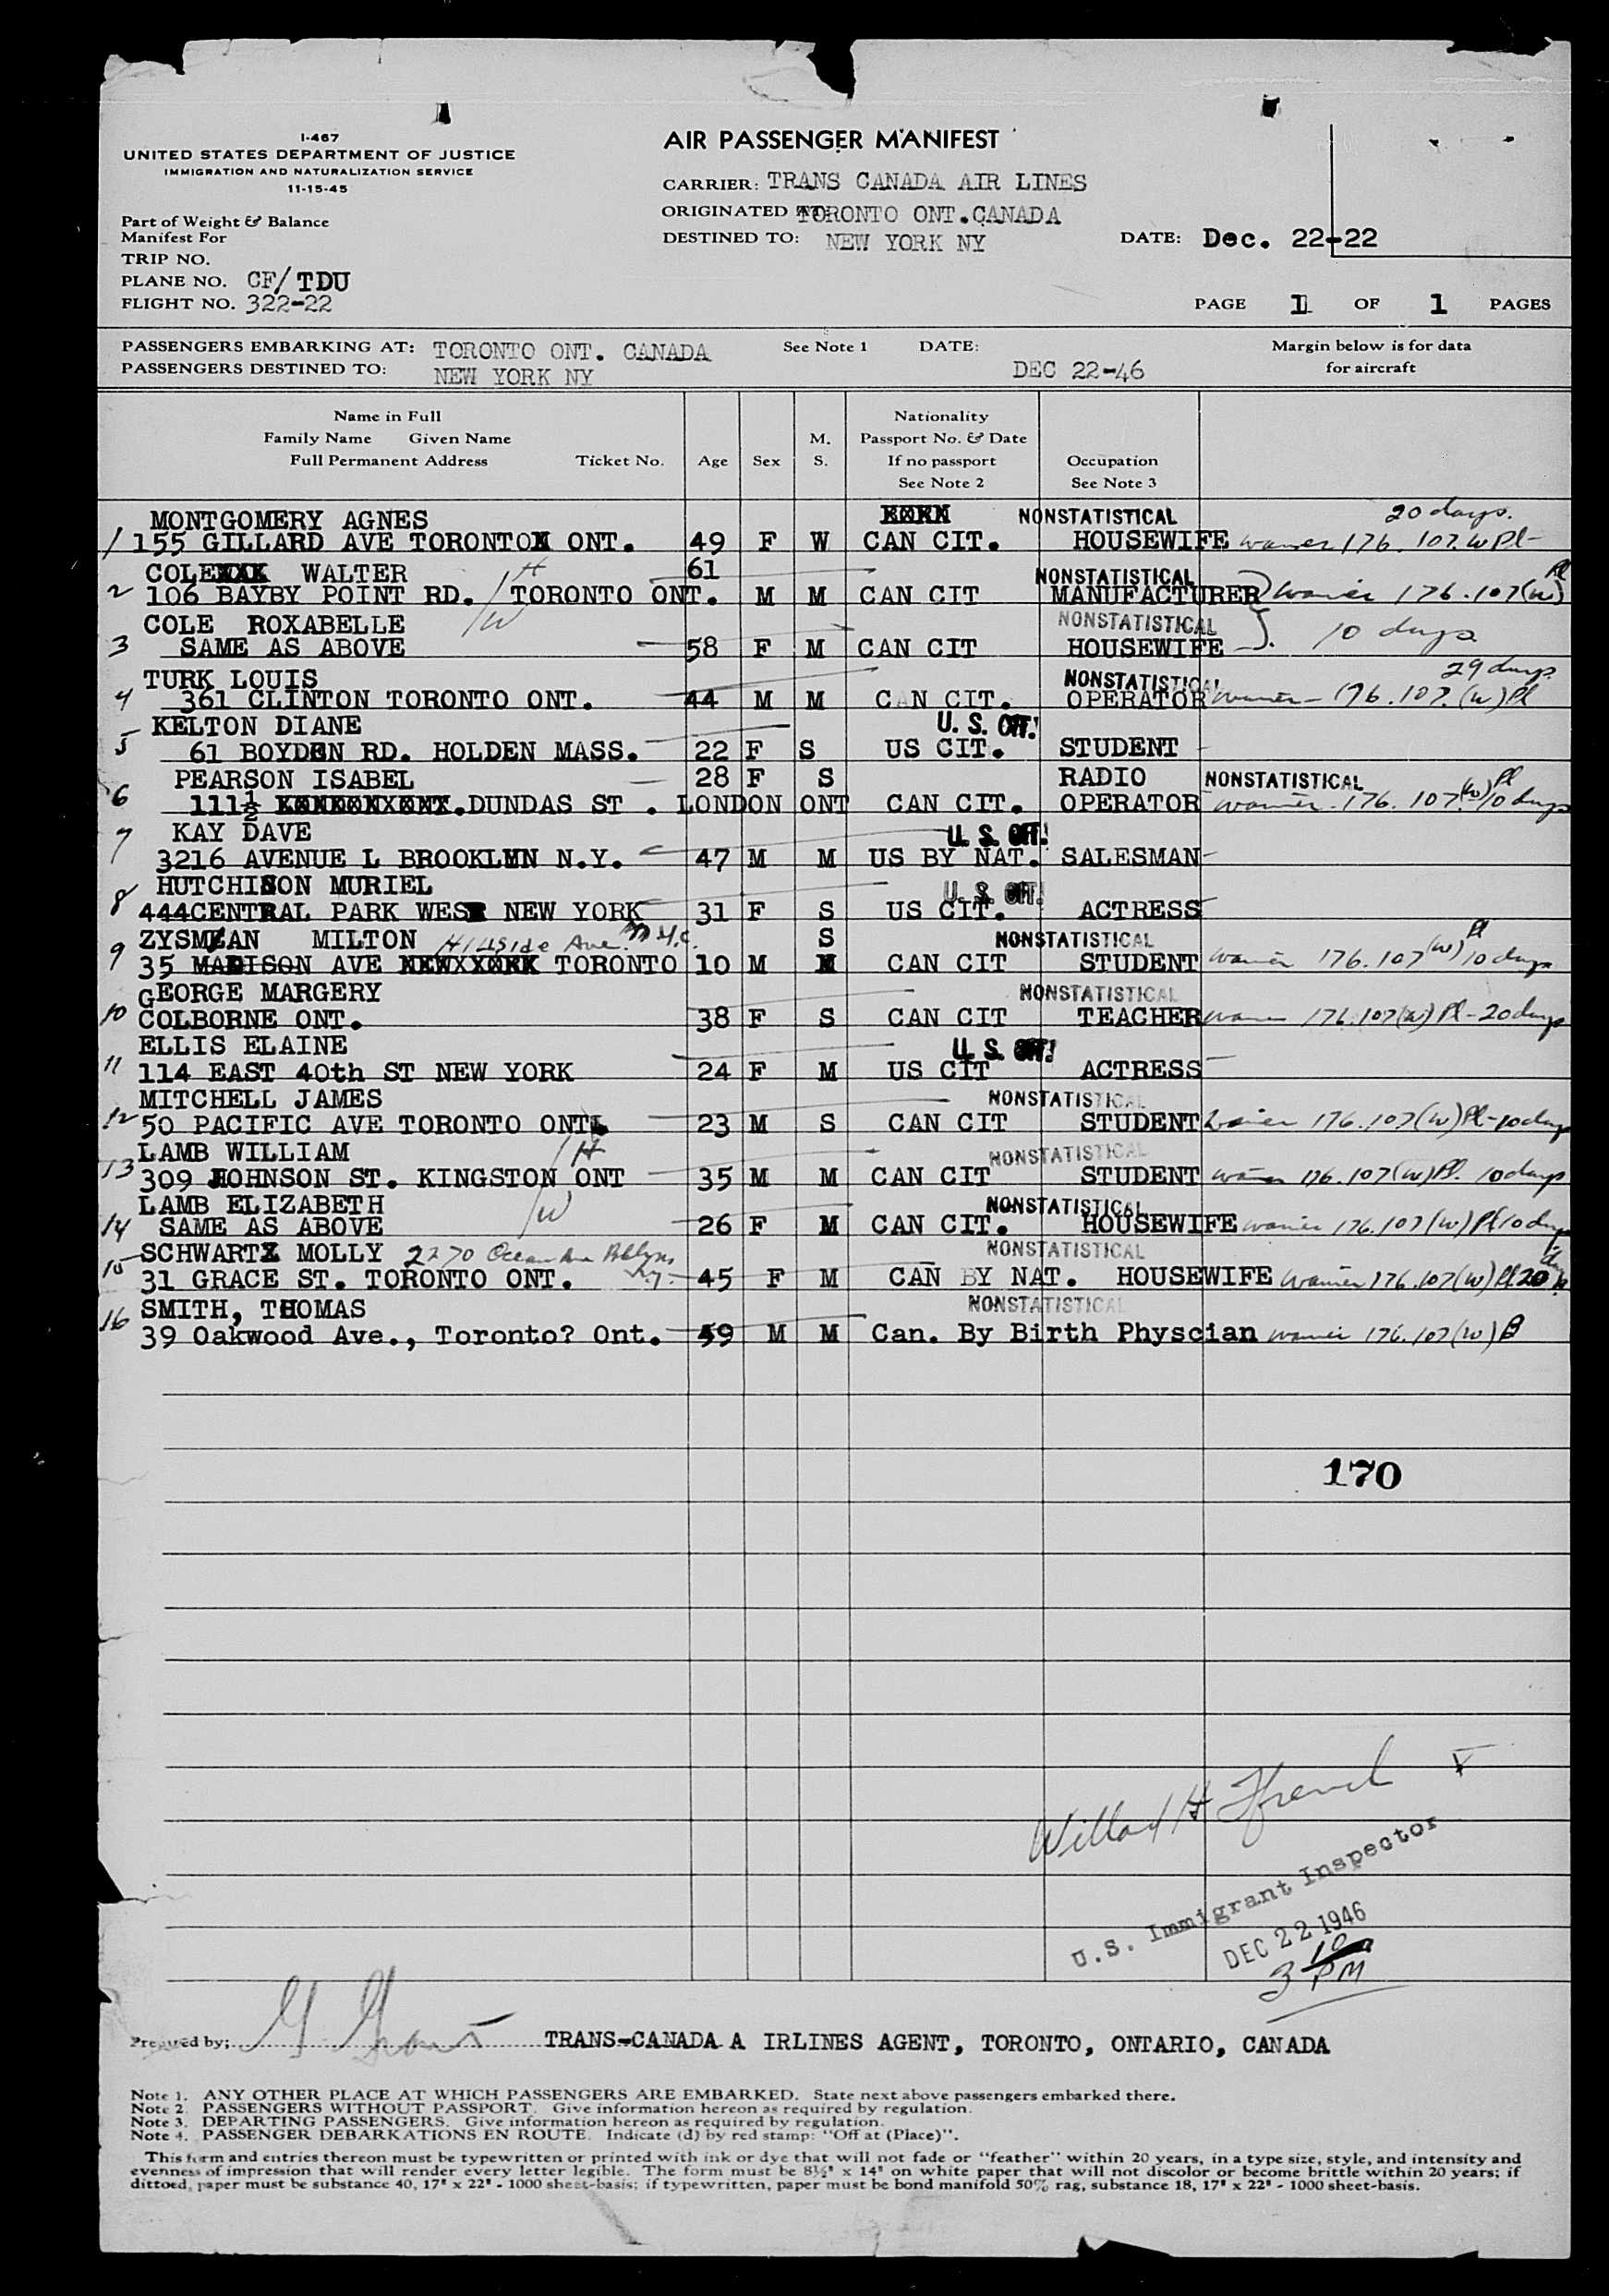 I-467
UNITED STATES DEPARTMENT OF JUSTICE
IMMIGRATION AND NATURALIZATION SERVICE
11-15-45
Part of Weight & Balance
Manifest For
TRIP NO.
PLANE NO. CF/TDU
FLIGHT NO. 322-22
AIR PASSENGER MANIFEST
CARRIER: TRANS CANADA AIR LINES
ORIGINATED TORONTO ONT.CANADA
DESTINED TO: NEW YORK NY
DATE: Dec. 22-22
PAGE 1 OF 1 PAGES
PASSENGERS EMBARKING AT: TORONTO ONT. CANADA See Note 1 DATE:
PASSENGERS DESTINED TO: NEW YORK NY DEC 22-46
Margin below is for data
for aircraft
Name in Full
Family Name Given Name
Full Permanent Address Ticket No. Age Sex
M.
S.
Nationality
Passport No. & Date
If no passport
See Note 2
Occupation
See Note 3
MONTGOMERY AGNES NONSTATISTICAL 20 days.
1 155 GILLARD AVE TORONTO ONT. 49 F W CAN CIT. HOUSEWIFE waiver 176.107.W Pl-
COLE WALTER H 61 NONSTATISTICAL Pl
2 106 BAYBY POINT RD. TORONTO ONT. M M CAN CIT MANUFACTURER waiver 176.107(w)
COLE ROXABELLE W NONSTATISTICAL
3 SAME AS ABOVE 58 F M CAN CIT HOUSEWIFE 10 days.
TURK LOUIS NONSTATISTICAL 29 days.
4 361 CLINTON TORONTO ONT. 44 M M CAN CIT. OPERATOR waiver- 176.107.(w) Pl
5 KELTON DIANE U.S. CIT!
61 BOYDEN RD. HOLDEN MASS. 22 F S US CIT. STUDENT
PEARSON ISABEL 28 F S RADIO NONSTATISTICAL Pl
6 111½ DUNDAS ST . LONDON ONT CAN CIT. OPERATOR waiver. 176.107.(w) 10 days
7 KAY DAVE U.S. CIT!
3216 AVENUE L BROOKLYN N.Y. 47 M M US BY NAT. SALESMAN
HUTCHISON MURIEL U.S. CIT!
8 444CENTRAL PARK WEST NEW YORK 31 F S US CIT. ACTRESS
ZYSMAN MILTON Hillside Ave. S NONSTATISTICAL Pl
9 35 MADISON AVE TORONTO 10 M CAN CIT STUDENT waiver 176.107(w) 10 days
GEORGE MARGERY NONSTATISTICAL
10 COLBORNE ONT. 38 F S CAN CIT TEACHER waiver 176.107(w) Pl-20 days
ELLIS ELAINE U.S. CIT!
11 114 EAST 40th ST NEW YORK 24 F M US CIT ACTRESS
MITCHELL JAMES NONSTATISTICAL
12 50 PACIFIC AVE TORONTO ONT 23 M S CAN CIT STUDENT waiver 176.107(w) Pl-10 days
LAMB WILLIAM H NONSTATISTICAL
13 309 JOHNSON ST. KINGSTON ONT 35 M M CAN CIT STUDENT waiver 176.107(w) Pl. 10 days
LAMB ELIZABETH W NONSTATISTICAL
14 SAME AS ABOVE 26 F M CAN CIT. HOUSEWIFE waiver 176.107(w) Pl 10 days
SCHWARTZ MOLLY 2270 Ocean Ave Bklyn NONSTATISTICAL
15 31 GRACE ST. TORONTO ONT. N.Y. 45 F M CAN BY NAT. HOUSEWIFE waiver 176.107(w) Pl 20 days
SMITH, THOMAS NONSTATISTICAL
16 39 Oakwood Ave., Toronto? Ont. 49 M M Can. By Birth Physcian waiver 176.107(w)
170
Willard H Ffrench
U.S. Immigrant Inspector
DEC 22 1946
3 10 PM
Prepared by; G Grant TRANS-CANADA A IRLINES AGENT, TORONTO, ONTARIO, CANADA
Note 1. ANY OTHER PLACE AT WHICH PASSENGERS ARE EMBARKED. State next above passengers embarked there.
Note 2. PASSENGERS WITHOUT PASSPORT. Give information hereon as required by regulation.
Note 3. DEPARTING PASSENGERS. Give information hereon as required by regulation.
Note 4. PASSENGER DEBARKATIONS EN ROUTE. Indicate (d) by red stamp: "Off at (Place)".
This form and entries thereon must be typewritten or printed with ink or dye that will not fade or "feather" within 20 years, in a type size, style, and intensity and
evenness of impression that will render every letter legible. The form must be 8½" x 14" on white paper that will not discolor or become brittle within 20 years; if
dittoed, paper must be substance 40, 17" x 22" - 1000 sheet-basis; if typewritten, paper must be bond manifold 50% rag, substance 18, 17" x 22" - 1000 sheet-basis.